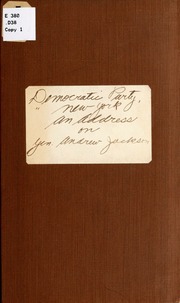 E 380
.D38
Copy 1
Democratic Party,
" New York
An Address
on
Gen. Andrew Jackson